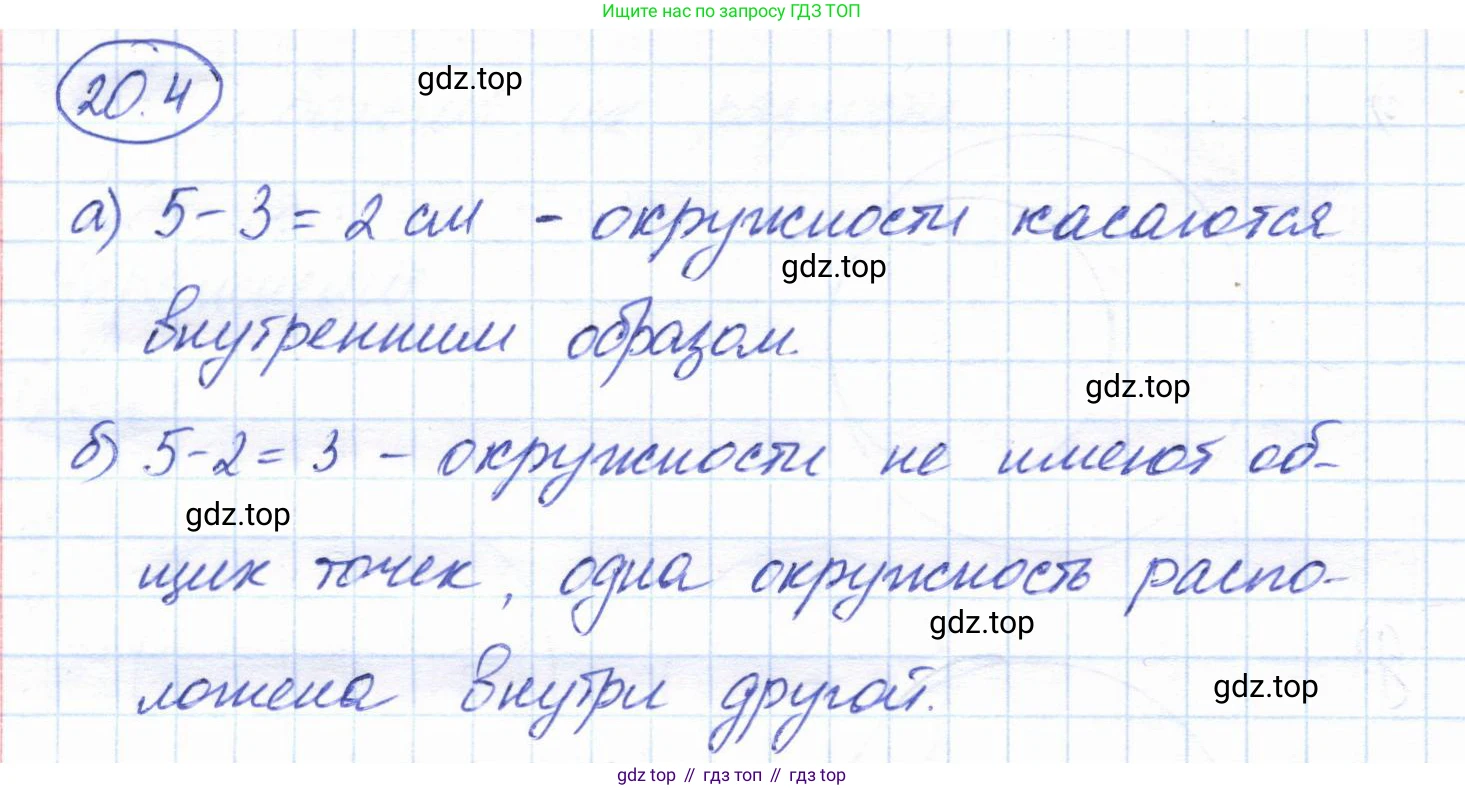 Ищите нас по запросу ГДЗ ТОП
20.4
gdz.top
а) 5-3=2 см - окружности касаются
gdz.top
внутренним образом.
gdz.top
б) 5-2=3 - окружности не имеют об-
gdz.top
щих точек, одна окружность распо-
gdz.top
ложена внутри другой.
gdz.top
gdz top // гдз топ // гдз top